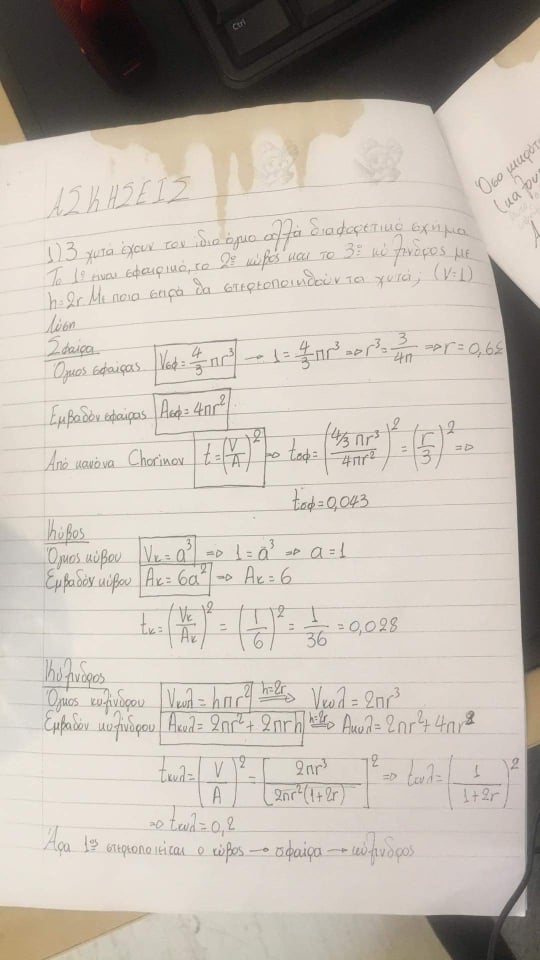 Ctrl
ΑΣΚΗΣΕΙΣ
1) 3 χυτά έχουν τον ίδιο όγκο αλλά διαφορετικό σχήμα
Το 1ο είναι σφαιρικό, το 2ο κύβος και το 3ο κύλινδρος με
h=2r. Με ποια σειρά θα στερεοποιηθούν τα χυτά; (V=1)
Λύση
Σφαίρα
Όγκος σφαίρας Vσφ = 4/3 πr³ → 1 = 4/3 πr³ ⇒ r³ = 3/4π ⇒ r = 0,62
Εμβαδόν σφαίρας Aσφ = 4πr²
Από κανόνα Chorinov t = (V/A)² ⇒ tσφ = (4/3 πr³ / 4πr²)² = (r/3)² ⇒
tσφ = 0,043
Κύβος
Όγκος κύβου Vκ = a³ ⇒ 1 = a³ ⇒ a = 1
Εμβαδόν κύβου Aκ = 6a² ⇒ Aκ = 6
tκ = (Vκ/Aκ)² = (1/6)² = 1/36 = 0,028
Κύλινδρος
Όγκος κυλίνδρου Vκυλ = hπr² h=2r ⇒ Vκυλ = 2πr³
Εμβαδόν κυλίνδρου Aκυλ = 2πr² + 2πrh h=2r ⇒ Aκυλ = 2πr² + 4πr²
tκυλ = (V/A)² = [2πr³ / 2πr²(1+2r)]² ⇒ tκυλ = (1 / 1+2r)²
⇒ tκυλ = 0,2
Άρα 1ος στερεοποιείται ο κύβος → σφαίρα → κύλινδρος
Όσο